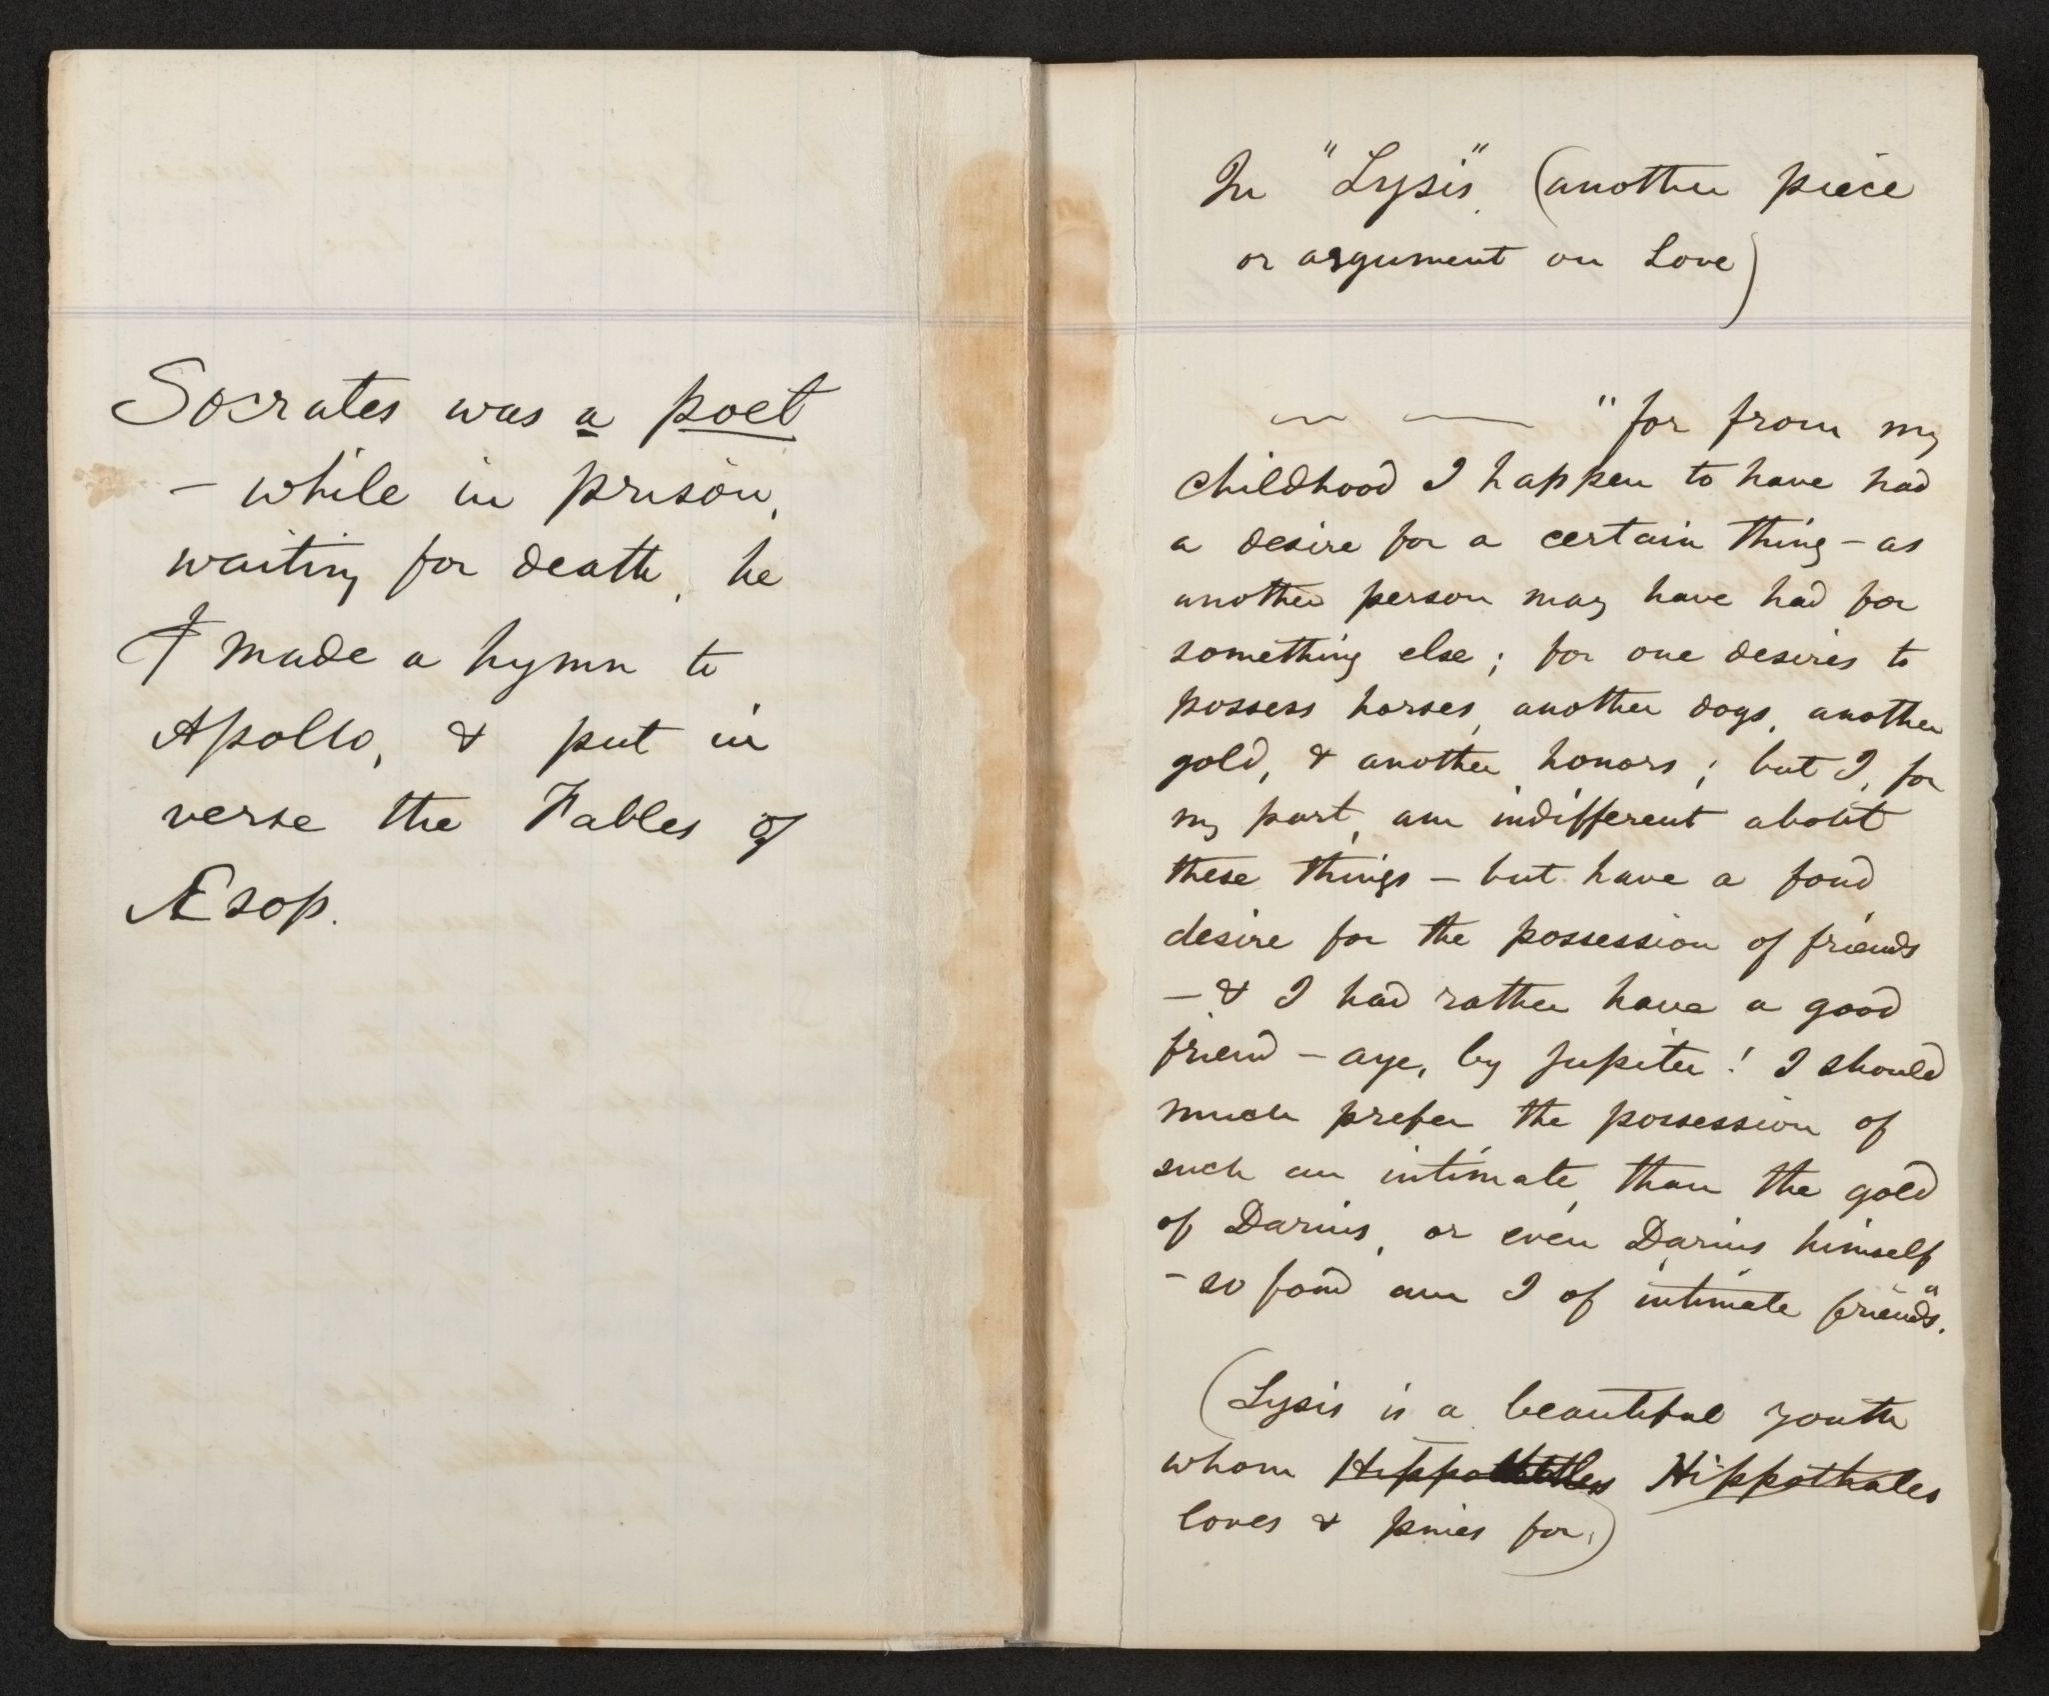 Socrates was a poet
– while in prison,
waiting for death, he
made a hymn to
Apollo, & put in
verse the Fables of
Æsop.
In "Lysis", (another piece
or argument on Love)
— — "for from my
childhood I happen to have had
a desire for a certain thing – as
another person may have had for
something else; for one desires to
possess horses, another dogs, another
gold, & another honors; but I, for
my part, am indifferent about
these things – but have a fond
desire for the possession of friends
– & I had rather have a good
friend – aye, by Jupiter! I should
much prefer the possession of
such an intimate, than the gold
of Darius, or even Darius himself
– so fond am I of intimate friends."
(Lysis is a beautiful youth
whom Hippothales
loves & pines for.)